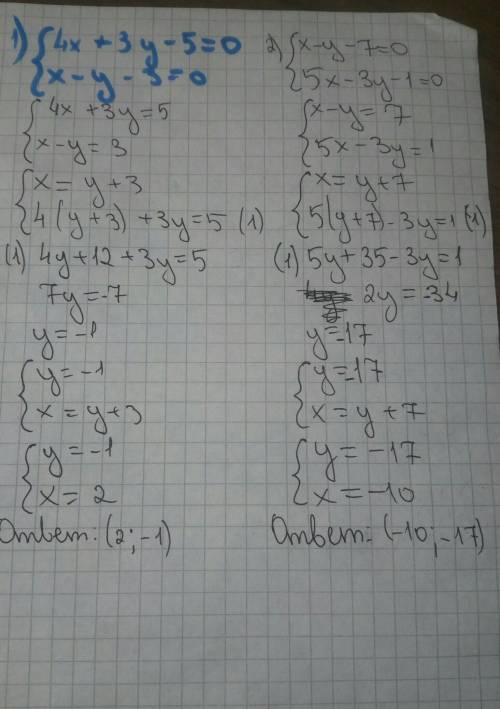 1) { 4x + 3y - 5 = 0
x - y - 3 = 0
{ 4x + 3y = 5
x - y = 3
{ x = y + 3
4(y + 3) + 3y = 5 (1)
(1) 4y + 12 + 3y = 5
7y = -7
y = -1
{ y = -1
x = y + 3
{ y = -1
x = 2
Ответ: (2; -1)
2) { x - y - 7 = 0
5x - 3y - 1 = 0
{ x - y = 7
5x - 3y = 1
{ x = y + 7
5(y + 7) - 3y = 1 (1)
(1) 5y + 35 - 3y = 1
2y = -34
y = -17
{ y = -17
x = y + 7
{ y = -17
x = -10
Ответ: (-10; -17)